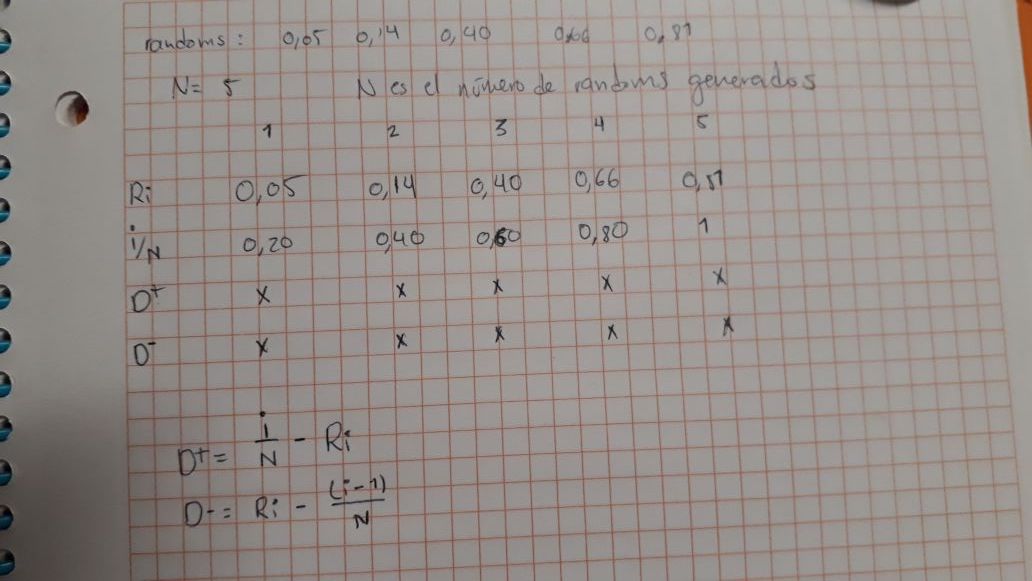 randoms: 0,05 0,14 0,40 0,66 0,81
N= 5 N es el número de randoms generados
1 2 3 4 5
Ri 0,05 0,14 0,40 0,66 0,81
i/N 0,20 0,40 0,60 0,80 1
D+ x x x x x
D- x x x x x
D+= i/N - Ri
D-= Ri - (i-1)/N